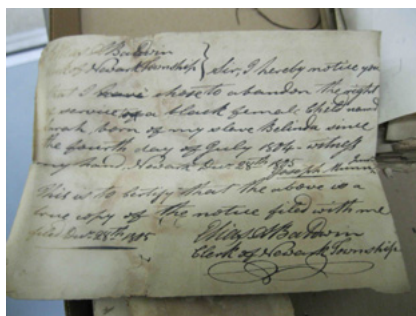 Baldwin
of Newark Township } Sir, I hereby notice you
that I have chose to abandon the right
service a black female Child named
born of my slave Belinda since
the fourth day of July 1804 - witness
my hand. Newark Decr 28th 1805
Joseph
This is to Certify that the above is a
true copy of the notice filed with me
filed Decr 28th 1805
Elias Baldwin
Clerk of Newark Township